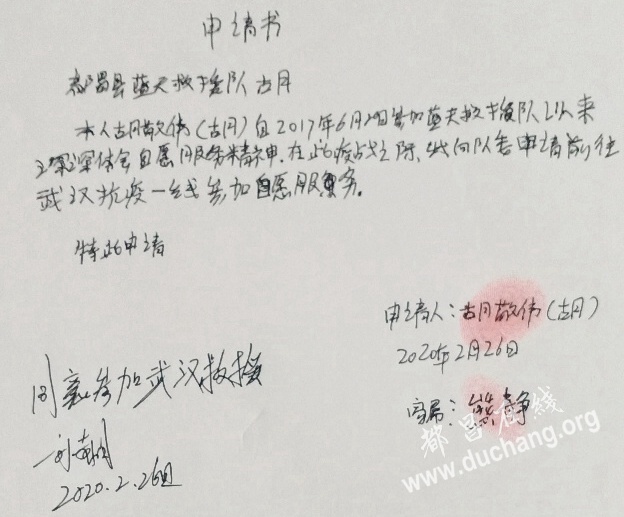 申请书
都昌县蓝天救援队古月
本人古月敬伟(古月)自2017年6月2日参加蓝天救援队以来
深深体会自愿服务精神.在此疫战之际、我向队委申请前往
武汉抗疫一线参加自愿服务。
特此申请
申请人:古月敬伟(古月)
2020年2月26日
家属:熊静
同意参加武汉救援
2020.2.26日
都昌在线
www.duchang.org